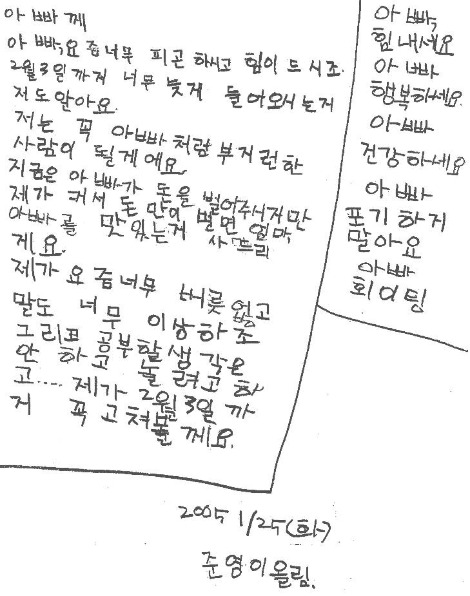 아빠께
아빠, 요즘너무 피곤하시고 힘이 드시조.
2월3일까지 너무 늦게 들어오시는거
저도알아요.
저는 꼭 아빠처럼 부지런한
사람이 될게에요.
지금은 아빠가 돈을 벌어주시지만
제가 커서 돈 많이 벌면 엄마,
아빠를 맛있는거 사드리
게요.
제가 요즘너무 버릇없고
말도 너무 이상하조
그리고 공부할생각은
안하고 놀려고하
고..... 제가 2월3일까
지 꼭고쳐볼께요.
아빠,
힘내세요
아빠
행복하세요.
아빠
건강하세요
아빠
포기하지
말아요
아빠
회이팅
2005 1/25(화)
준영이올림.